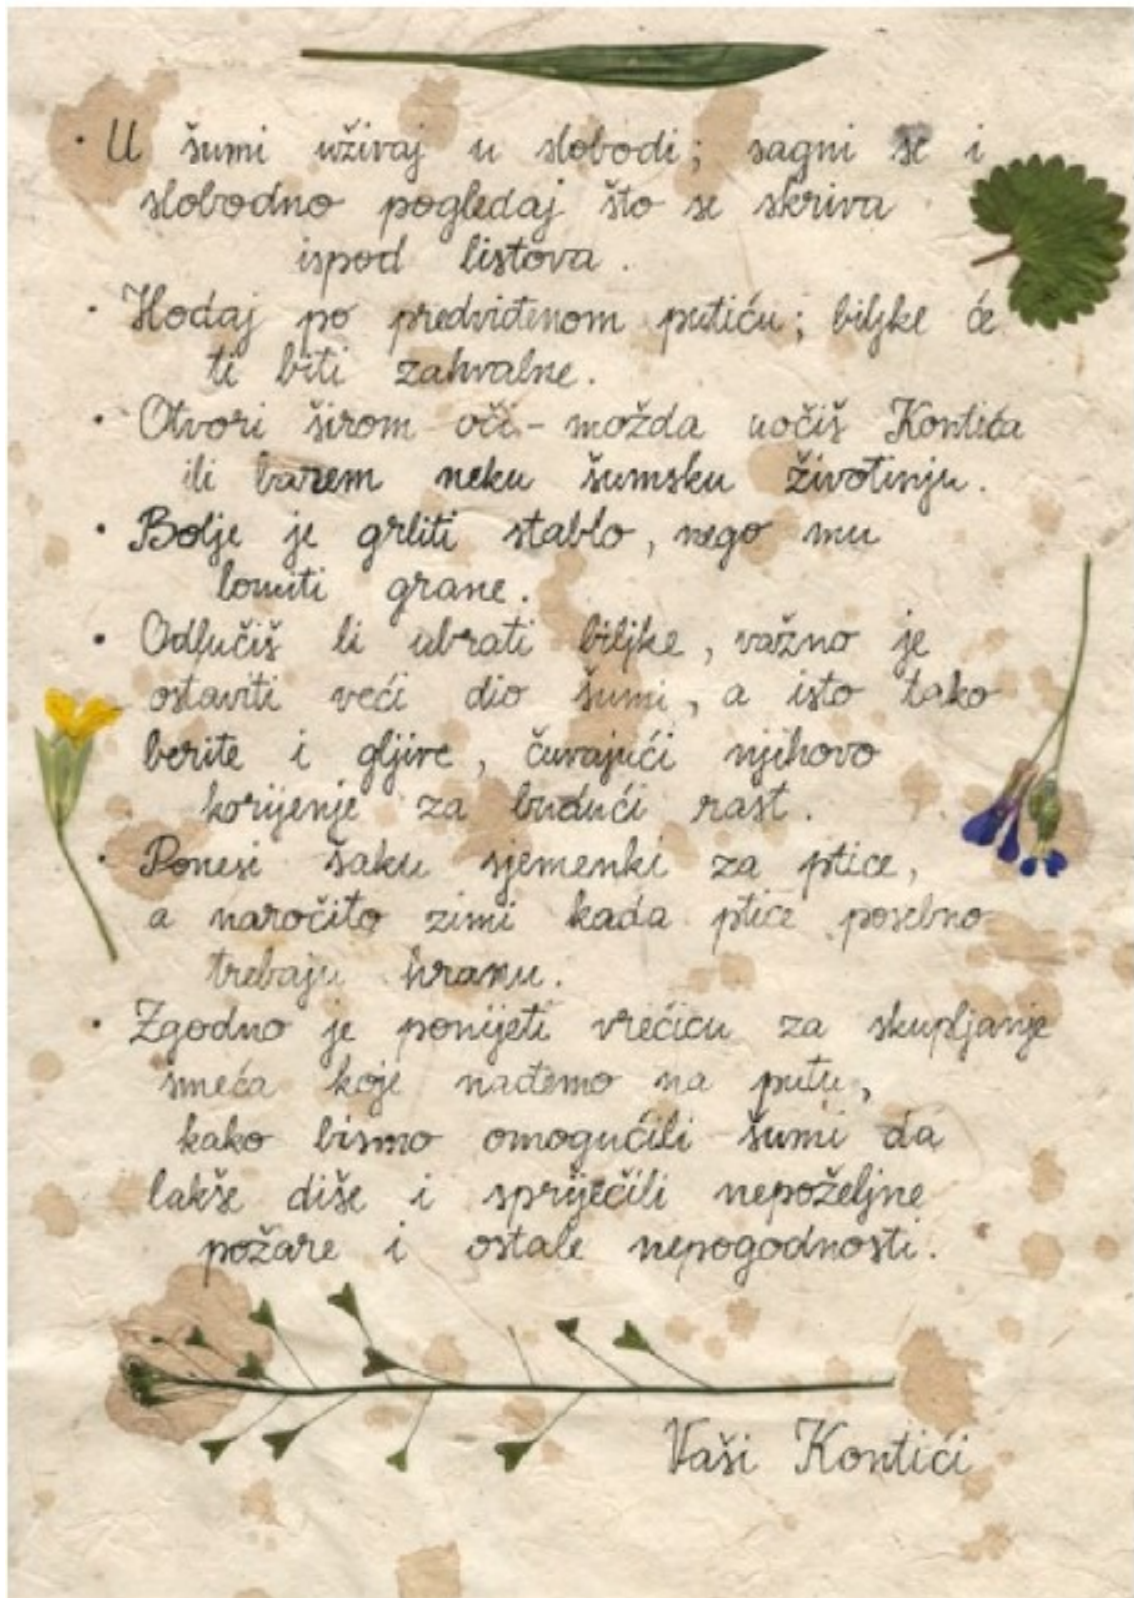 • U šumi uživaj u slobodi; sagni se i
slobodno pogledaj što se skriva
ispod listova.
• Hodaj po predviđenom putiću; biljke će
ti biti zahvalne.
• Otvori širom oči - možda uočiš Kontića
ili barem neku šumsku životinju.
• Bolje je grliti stablo, nego mu
lomiti grane.
• Odlučiš li ubrati biljke, važno je
ostaviti veći dio šumi, a isto tako
berite i gljive, čuvajući njihovo
korijenje za budući rast.
• Ponesi šaku sjemenki za ptice,
a naročito zimi kada ptice posebno
trebaju hranu.
• Zgodno je ponijeti vrećicu za skupljanje
smeća koje nađemo na putu,
kako bismo omogućili šumi da
lakše diše i spriječili nepoželjne
požare i ostale nepogodnosti.
Vaši Kontići